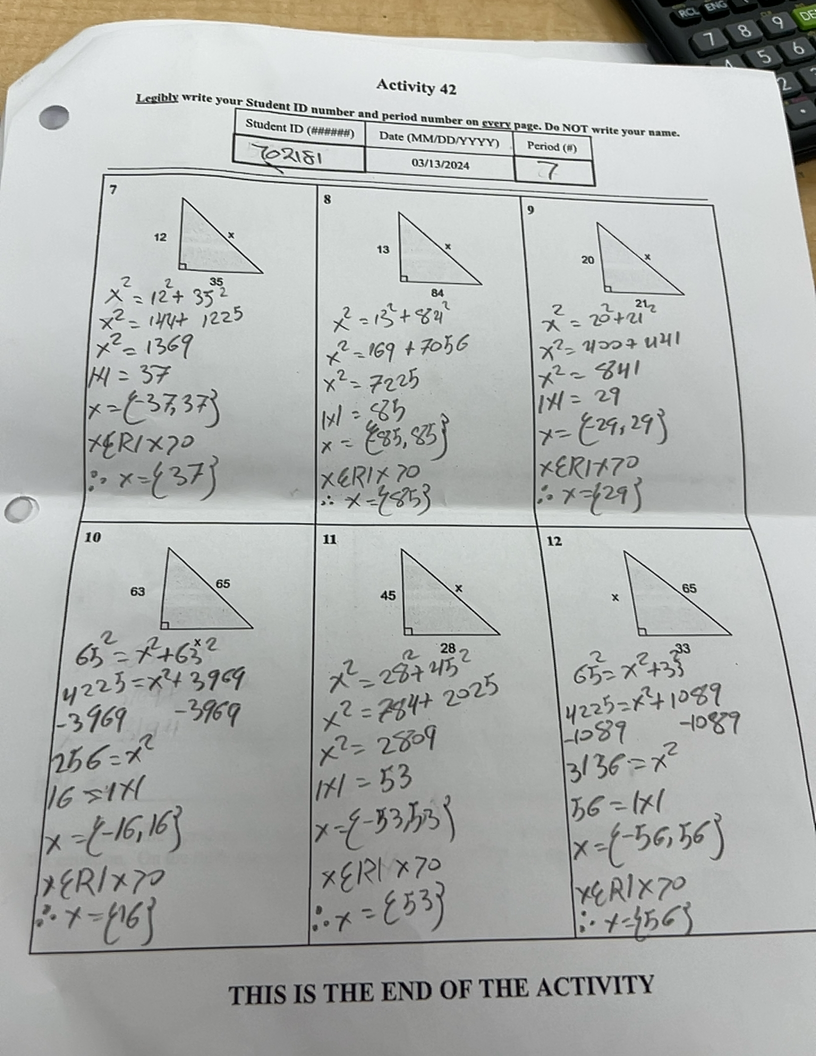 RCL ENG
7 8 9 DE
4 5 6
2
Activity 42
Legibly write your Student ID number and period number on every page. Do NOT write your name.
Student ID (######) Date (MM/DD/YYYY) Period (#)
702181 03/13/2024 7
7
12
x
35
x² = 12² + 35²
x² = 144 + 1225
x² = 1369
|x| = 37
x = {-37, 37}
x∈R | x>0
∴ x = {37}
8
13
x
84
x² = 13² + 84²
x² = 169 + 7056
x² = 7225
|x| = 85
x = {85, 85}
x∈R | x>0
∴ x = {85}
9
20
x
21
x² = 20² + 21²
x² = 400 + 441
x² = 841
|x| = 29
x = {-29, 29}
x∈R | x>0
∴ x = {29}
10
63
65
x
65² = x² + 63²
4225 = x² + 3969
-3969 -3969
256 = x²
16 = |x|
x = {-16, 16}
x∈R | x>0
∴ x = {16}
11
45
x
28
x² = 28² + 45²
x² = 784 + 2025
x² = 2809
|x| = 53
x = {-53, 53}
x∈R | x>0
∴ x = {53}
12
x
65
33
65² = x² + 33²
4225 = x² + 1089
-1089 -1089
3136 = x²
56 = |x|
x = {-56, 56}
x∈R | x>0
∴ x = {56}
THIS IS THE END OF THE ACTIVITY